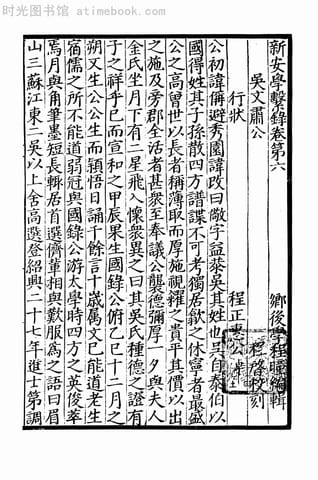 时光图书馆 - atimebook.com
新安學繫錄卷第六
鄉後學程曈編輯
程啓校刻
吳文肅公
行狀 程正惠公
公初諱偁避秀園諱改曰儆字益恭吳其姓也吳自泰伯以
國得姓其子孫散四方譜諜不可考獨居歙之休寧者最盛
公之高曾世以長者稱薄取而厚施視糴之貴平其價以出
之施及旁郡全活者甚衆至奉議公龔德彌厚一夕與夫人
金氏坐月下有二星飛入懷衆異之曰其吳氏種德之證有
子之祥乎已而宣和之甲辰果生國錄公俯乙巳十二月之
朔又生公公生而穎悟日誦千餘言十歲屬文已能道老生
宿儒之所不能道弱冠與國錄公游太學時四方之英俊萃
焉月與角筆墨短長輒居首選儕輩相與歎服為之語曰眉
山三蘇江東二吳以上舍高選登紹興二十七年進士第調